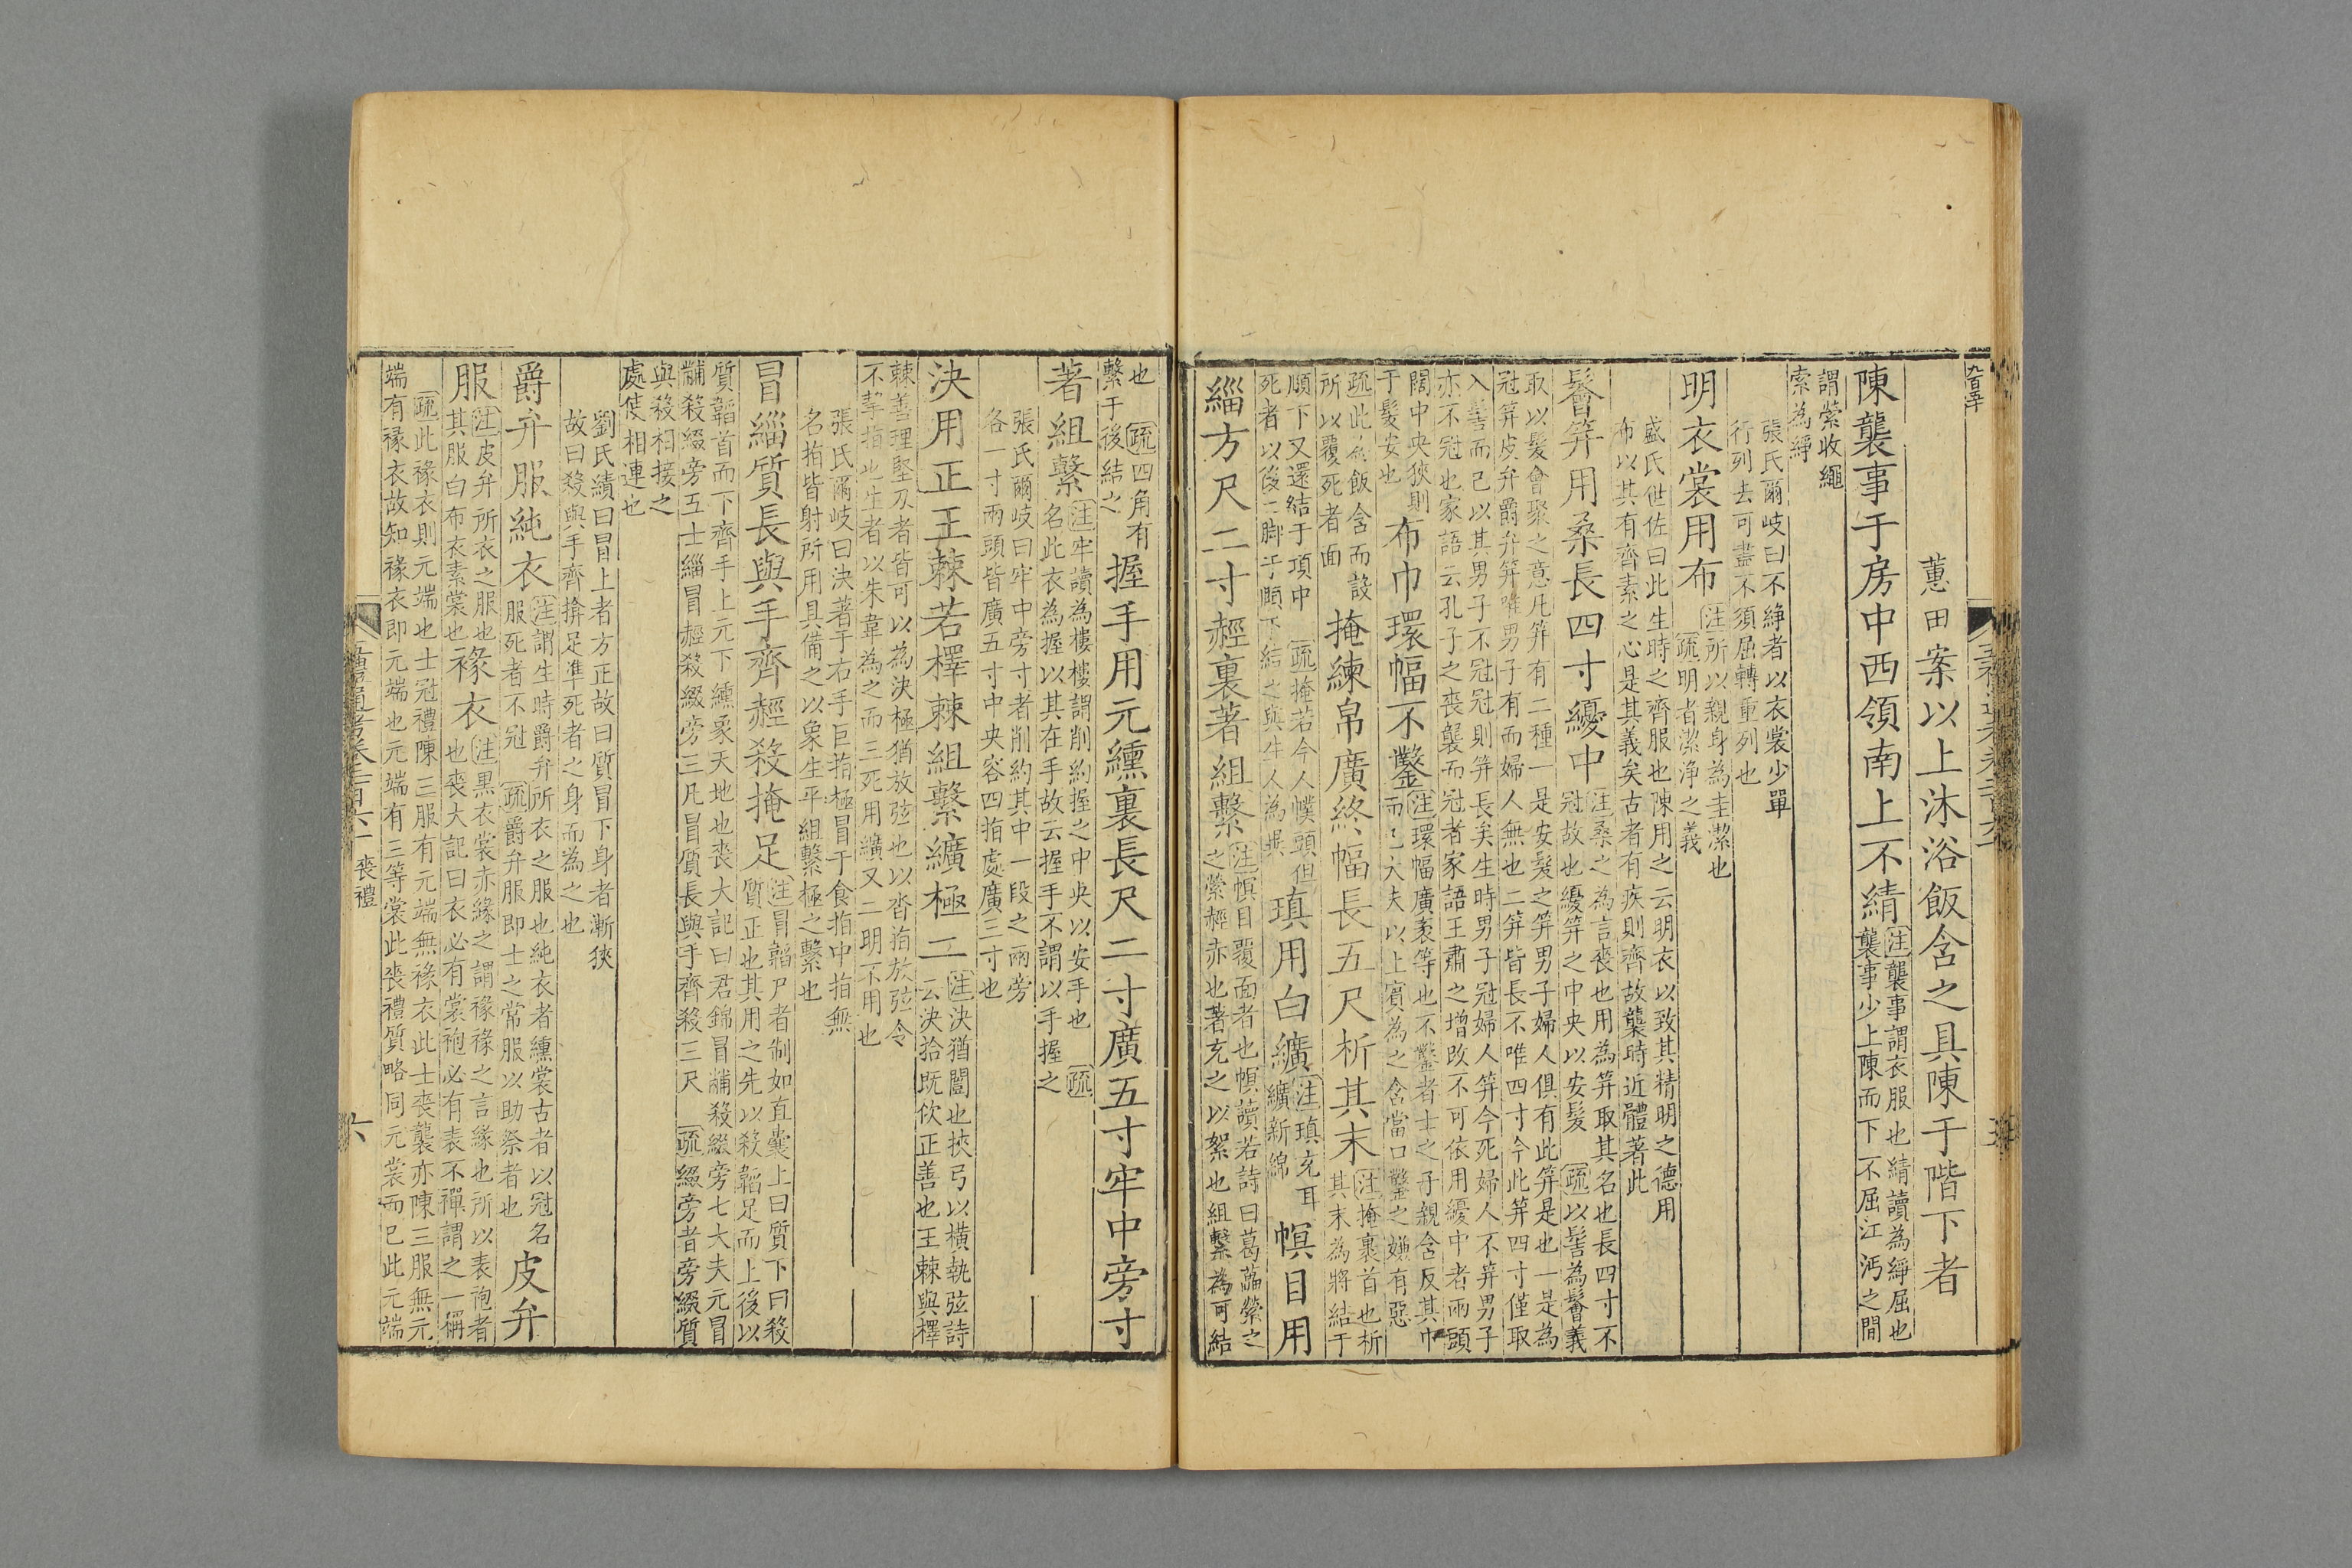 蕙田案以上沐浴飯含之具陳于階下者
陳襲事于房中西領南上不綪
注襲事謂衣服也綪讀為絣屈也
襲事少上陳而下不屈江沔之間
謂縈收繩
索為絣
張氏爾岐曰不絣者以衣裳少單
行列去可盡不須屈轉重列也
明衣裳用布
注所以親身為圭潔也
疏明者潔浄之義
盛氏世佐曰此生時之齊服也陳用之云明衣以致其精明之德用
布以其有齊素之心是其義矣古者有疾則齊故襲時近體著此
鬠笄用桑長四寸纋中
注桑之為言喪也用為笄取其名也長四寸不
冠故也纋笄之中央以安髮 疏以髻為鬠義
取以髮會聚之意凡笄有二種一是安髮之笄男子婦人俱有此笄是也一是為
冠笄皮弁爵弁笄唯男子有而婦人無也二笄皆長不唯四寸今此笄四寸僅取
入髻而已以其男子不冠冠則笄長矣生時男子冠婦人笄今死婦人不笄男子
亦不冠也家語云孔子之喪襲而冠者家語王肅之增改不可依用纋中者兩頭
闊中央狹則
于髮安也
布巾環幅不鑿
注環幅廣袤等也不鑿者士之子親含反其巾
而已大夫以上賓為之含當口鑿之嫌有惡
疏此為飯含而設
所以覆死者面
掩練帛廣終幅長五尺析其末
注掩裹首也析
其末為將結于
頤下又還結于項中 疏掩若今人幞頭但
死者以後二脚于頤下結之與生人為異
瑱用白纊
注瑱充耳
纊新綿
幎目用
緇方尺二寸䞓裏著組繫
注幎目覆面者也幎讀若詩曰葛藟縈之
之縈䞓亦也著充之以絮也組繫為可結
也 疏四角有
繫于後結之
握手用元纁裏長尺二寸廣五寸牢中旁寸
著組繫
注牢讀為樓樓謂削約握之中央以安手也 疏
名此衣為握以其在手故云握手不謂以手握之
張氏爾岐曰牢中旁寸者削約其中一段之兩旁
各一寸兩頭皆廣五寸中央容四指處廣三寸也
決用正王棘若檡棘組繫纊極二
注決猶闓也挾弓以橫執弦詩
云決拾既佽正善也王棘與檡
棘善理堅刃者皆可以為決極猶放弦也以沓指放弦令
不挈指也生者以朱韋為之而三死用纊又二明不用也
張氏爾岐曰決著于右手巨指極冒于食指中指無
名指皆射所用具備之以象生平組繫極之繫也
冒緇質長與手齊䞓殺掩足
注冒韜尸者制如直囊上曰質下曰殺
質正也其用之先以殺韜足而上後以
質韜首而下齊手上元下纁象天地也喪大記曰君錦冒黼殺綴旁七大夫元冒
黼殺綴旁五士緇冒䞓殺綴旁三凡冒質長與手齊殺三尺 疏綴旁者旁綴質
與殺相接之
處使相連也
劉氏績曰冒上者方正故曰質冒下身者漸狹
故曰殺與手齊揜足準死者之身而為之也
爵弁服純衣
注謂生時爵弁所衣之服也純衣者纁裳古者以冠名
服死者不冠 疏爵弁服即士之常服以助祭者也
皮弁
服
注皮弁所衣之服也
其服白布衣素裳也
褖衣
注黑衣裳赤緣之謂褖褖之言緣也所以表袍者
也喪大記曰衣必有裳袍必有表不襌謂之一稱
疏此褖衣則元端也士冠禮陳三服有元端無褖衣此士喪襲亦陳三服無元
端有褖衣故知褖衣即元端也元端有三等裳此喪禮質略同元裳而已此元端
喪禮